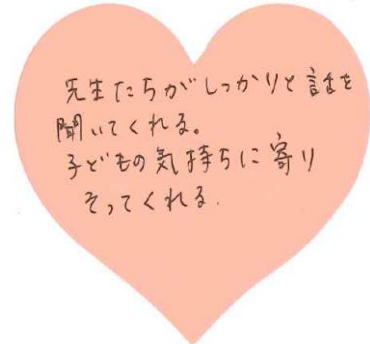 先生たちがしっかりと話を
聞いてくれる。
子どもの気持ちに寄り
そってくれる.